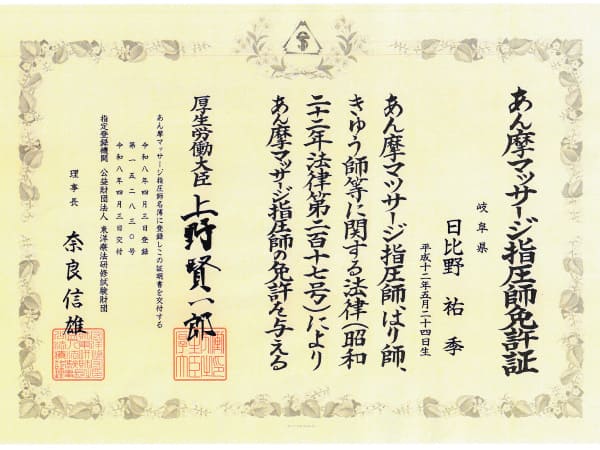 あん摩マッサージ指圧師免許証
岐阜県
日比野祐季
平成十二年五月二十四日生
あん摩マッサージ指圧師、はり師、
きゅう師等に関する法律(昭和
二十二年法律第二百十七号)により
あん摩マッサージ指圧師の免許を与える
厚生労働大臣 上野賢一郎
あん摩マッサージ指圧師名簿に登録しこの証明書を交付する
令和八年四月三日登録
第一五二八三〇号
令和八年四月三日交付
指定登録機関 公益財団法人 東洋療法研修試験財団
理事長 奈良信雄